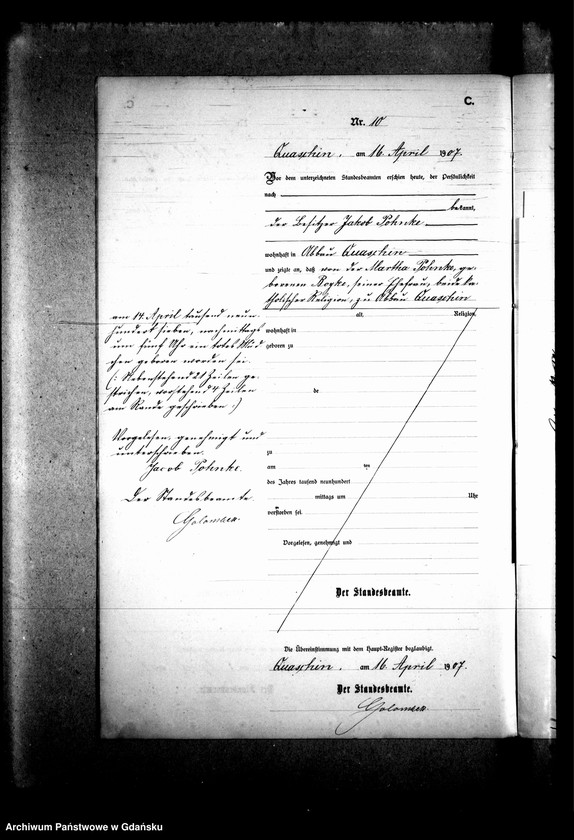 C.
Nr. 10
Quaschin, am 16 April 1907.
Vor dem unterzeichneten Standesbeamten erschien heute, der Persönlichkeit
nach
bekannt,
der Besitzer Jakob Pohnke
wohnhaft in Abbau Quaschin
und zeigte an, daß von der Martha Pohnke, ge-
borenen Royke, seiner Ehefrau, beide ka-
tholischer Religion, zu Abbau Quaschin
am 14 April tausend neun-
hundert sieben, nachmittags
um fünf Uhr ein totes Mäd-
chen geboren worden sei.
(: Nebenstehend 21 Zeilen ge-
strichen, vorstehend 4 Zeilen
am Rande geschrieben :)
Vorgelesen, genehmigt und
unterschrieben.
Jacob Pohnke.
Der Standesbeamte.
alt, Religion,
wohnhaft in
geboren zu
de
zu
am ten
des Jahres tausend neunhundert
mittags um Uhr
verstorben sei.
Vorgelesen, genehmigt und
Der Standesbeamte.
Die Übereinstimmung mit dem Haupt-Register beglaubigt.
Quaschin, am 16 April 1907.
Der Standesbeamte.
Archiwum Państwowe w Gdańsku